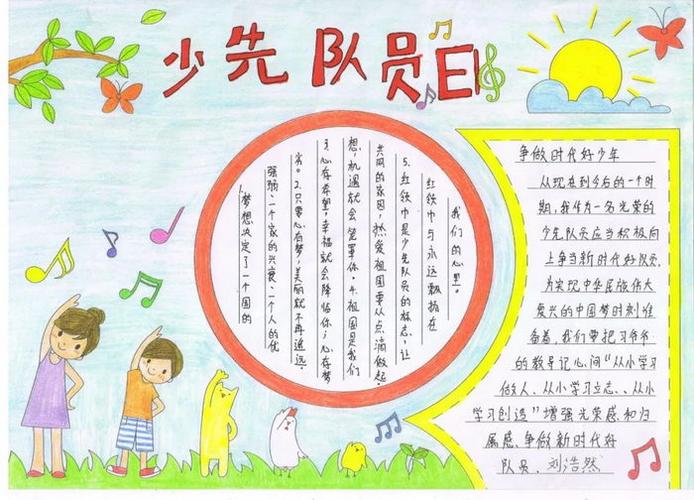 少先队员日
1.梦想决定了一个国的
强弱、一个家的兴衰、一个人的优
劣。2.只要心有梦,美丽就不再遥远.
3.心存希望,幸福就会降临你;心存梦
想,机遇就会笼罩你。4.祖国是我们
共同的家园,热爱祖国要从点滴做起。
5.红领巾是少先队员的标志,让
红领巾与永远飘扬在
我们的心里。
争做时代好少年
从现在到今后的一个时
期,我作为一名光荣的
少先队员应当积极向
上争当新时代好队员,
为实现中华民族伟大
复兴的中国梦时刻准
备着,我们要把习爷爷
的教导记心间“从小学习
做人、从小学习立志、从小
学习创造”增强光荣感和归
属感、争做新时代好
队员. 刘浩然